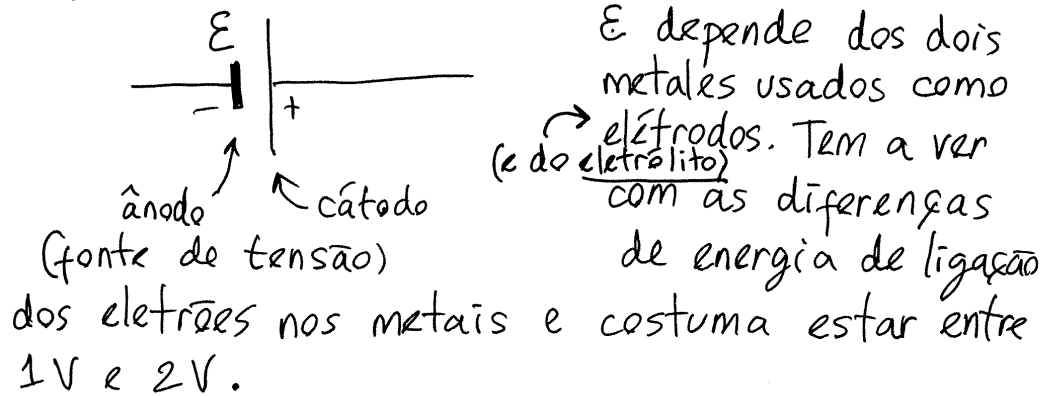 ε
− +
ânodo cátodo
(fonte de tensão)
ε depende dos dois
metales usados como
elétrodos. Tem a ver
(e do eletrólito)
com as diferenças
de energia de ligação
dos eletrões nos metais e costuma estar entre
1V e 2V.